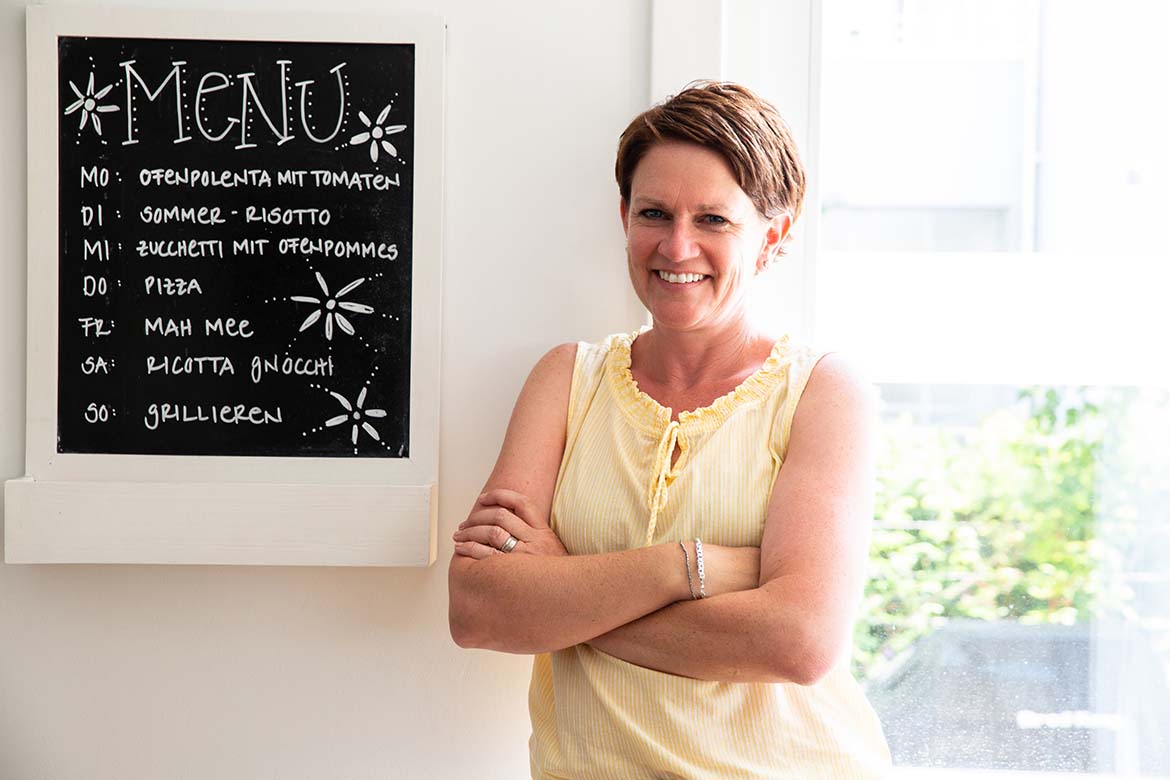 MENU
MO: OFENPOLENTA MIT TOMATEN
DI: SOMMER-RISOTTO
MI: ZUCCHETTI MIT OFENPOMMES
DO: PIZZA
FR: MAH MEE
SA: RICOTTA GNOCCHI
SO: GRILLIEREN